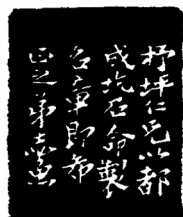 杼坪仁兄以都
成坑石命製
名章即希
正之弟